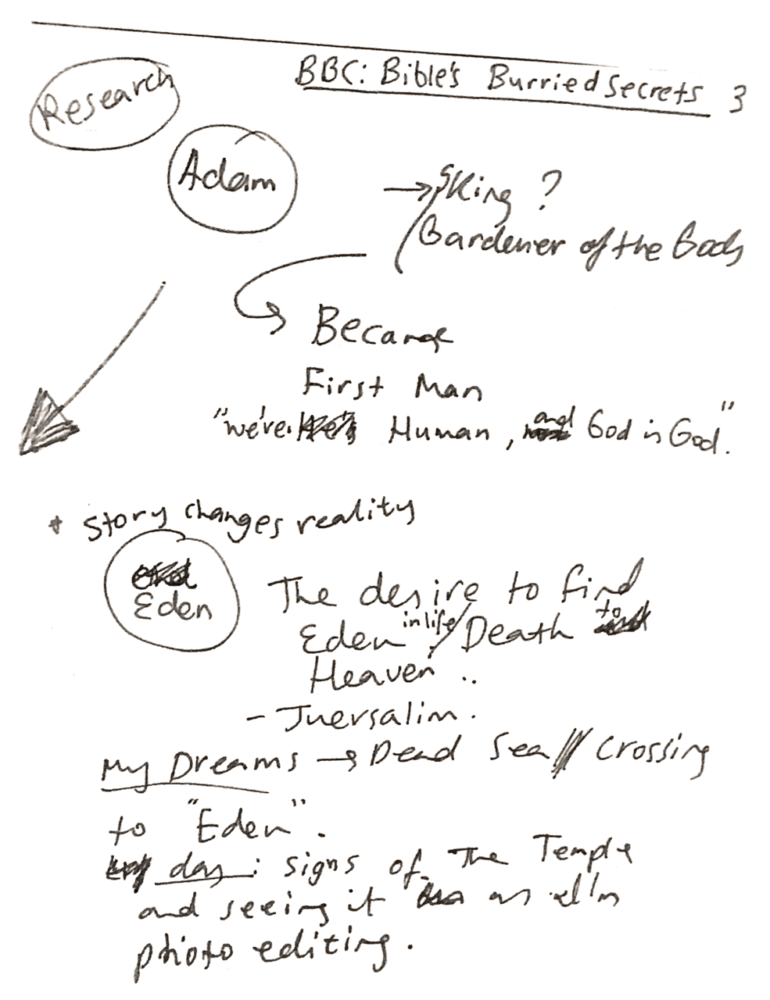 BBC: Bible's Burried Secrets 3
Research
Adam
→ King ?
Gardener of the Gods
Became
First Man
"we're Human, and God is God."
* Story changes reality
Eden
The desire to find
Eden in life / Death to
Heaven ..
- Juersalim.
My Dreams → Dead Sea // Crossing
to "Eden".
day: signs of The Temple
and seeing it as I'm
photo editing.